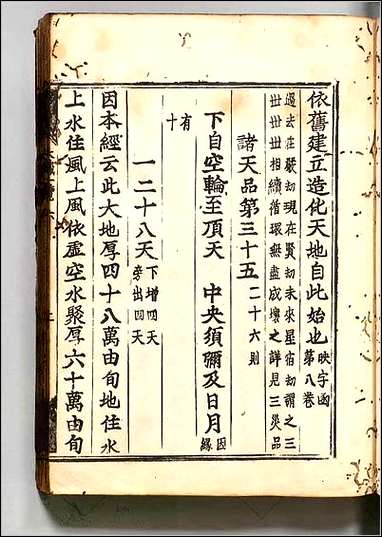 依舊建立造化天地自此始也映字函第八卷
過去莊嚴劫現在賢劫未來星宿劫謂之三
世世世相續循環無盡成壞之詳見三災品
諸天品第三十五二十六則
下自空輪至頂天 中央須彌及日月因緣
有十
一二十八天下增四天旁出四天
因本經云此大地厚四十八萬由旬地住水
上水住風上風依虛空水聚厚六十萬由旬